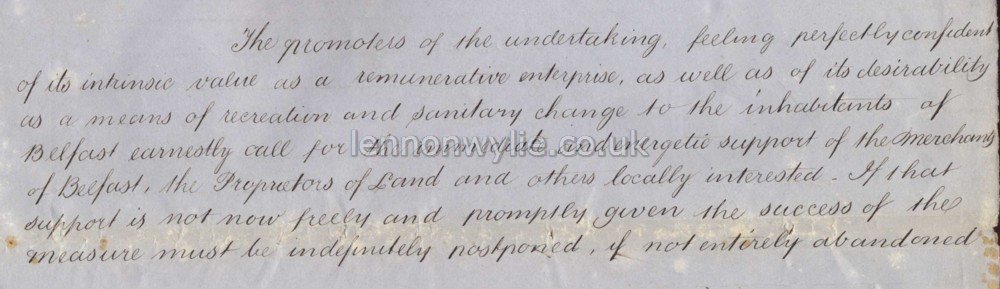 The promoters of the undertaking, feeling perfectly confident
of its intrinsic value as a remunerative enterprise, as well as of its desirability
as a means of recreation and sanitary change to the inhabitants of
Belfast earnestly call for the immediate and energetic support of the Merchants
lennonwylie.co.uk
of Belfast, the Proprietors of Land and others locally interested. If that
support is not now freely and promptly given the success of the
measure must be indefinitely postponed, if not entirely abandoned